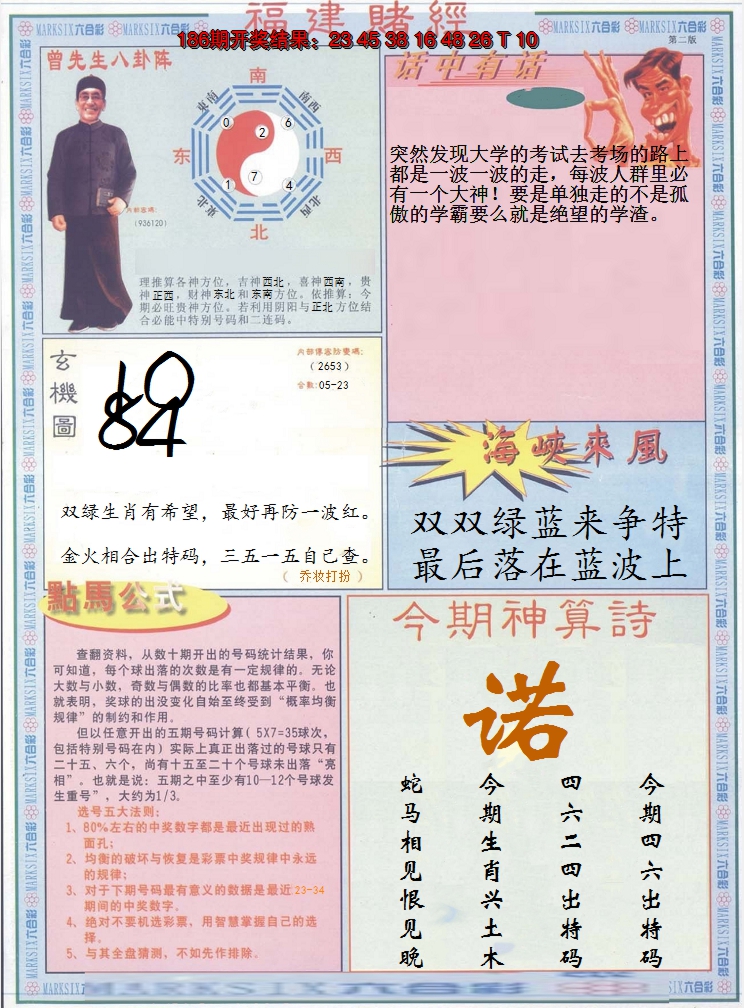 福建賭經
186期开奖结果：23 45 38 16 48 26 T 10
第二版
曾先生八卦阵
南
東南
南西
0
2
6
东
西
1
7
4
東北
北西
北
內部密碼:
(936120)
理推算各神方位，吉神西北，喜神西南，贵
神正西，财神东北和东南方位。依推算：今
期必旺贵神方位。若利用阴阳与正北方位结
合必能中特别号码和二连码。
话中有话
突然发现大学的考试去考场的路上
都是一波一波的走，每波人群里必
有一个大神！要是单独走的不是孤
傲的学霸要么就是绝望的学渣。
玄機圖
內部傳密防雙碼:
(2653)
合數:05-23
双绿生肖有希望，最好再防一波红。
金火相合出特码，三五一五自己查。
（ 乔妆打扮 ）
海峽來風
双双绿蓝来争特
最后落在蓝波上
點馬公式
查翻资料，从数十期开出的号码统计结果，你
可知道，每个球出落的次数是有一定规律的。无论
大数与小数，奇数与偶数的比率也都基本平衡。也
就表明，奖球的出没变化自始至终受到“概率均衡
规律”的制约和作用。
但以任意开出的五期号码计算(5X7=35球次，
包括特别号码在内)实际上真正出落过的号球只有
二十五、六个，尚有十五至二十个号球未出落“亮
相”。也就是说：五期之中至少有10—12个号球发
生重号”，大约为1/3。
选号五大法则:
1、80%左右的中奖数字都是最近出现过的熟
面孔;
2、均衡的破坏与恢复是彩票中奖规律中永远
的规律;
3、对于下期号码最有意义的数据是最近23-34
期间的中奖数字。
4、绝对不要机选彩票，用智慧掌握自己的选
择。
5、与其全盘猜测，不如先作排除.
今期神算詩
诺
今期四六出特码
四六二四出特码
今期生肖兴土木
蛇马相见恨见晚
MARKSIX六合彩